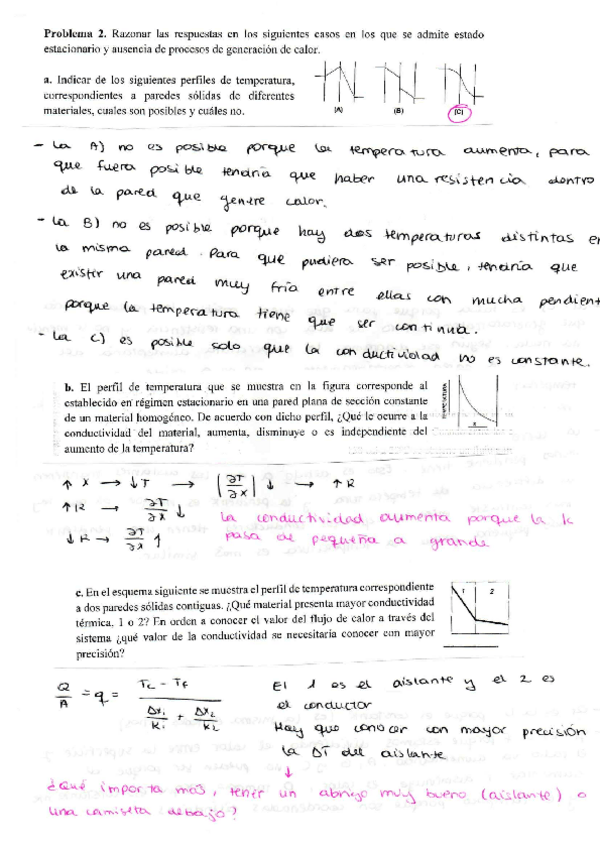 Problema 2. Razonar las respuestas en los siguientes casos en los que se admite estado
estacionario y ausencia de procesos de generación de calor.
a. Indicar de los siguientes perfiles de temperatura,
correspondientes a paredes sólidas de diferentes
materiales, cuales son posibles y cuáles no.
(A) (B) (C)
- La A) no es posible porque la temperatura aumenta, para
que fuera posible tendría que haber una resistencia dentro
de la pared que genere calor.
- La B) no es posible porque hay dos temperaturas distintas en
la misma pared. Para que pudiera ser posible, tendría que
existir una pared muy fría entre ellas con mucha pendient
porque la temperatura tiene que ser continua.
- La C) es posible solo que la conductividad no es constante.
b. El perfil de temperatura que se muestra en la figura corresponde al
establecido en régimen estacionario en una pared plana de sección constante
de un material homogéneo. De acuerdo con dicho perfil, ¿Qué le ocurre a la
conductividad del material, aumenta, disminuye o es independiente del
aumento de la temperatura?
TEMPERATURA
x
↑ x → ↓T → |∂T/∂x| ↓ → ↑ k
↑ k → ∂T/∂x ↓
↓ k → ∂T/∂x ↑
La conductividad aumenta porque la k
pasa de pequeña a grande
c. En el esquema siguiente se muestra el perfil de temperatura correspondiente
a dos paredes sólidas contiguas. ¿Qué material presenta mayor conductividad
térmica, 1 o 2? En orden a conocer el valor del flujo de calor a través del
sistema ¿qué valor de la conductividad se necesitaria conocer con mayor
precisión?
1 2
Q/A = q = (Tc - Tf) / (Δx₁/k₁ + Δx₂/k₂)
El 1 es el aislante y el 2 es
el conductor
Hay que conocer con mayor precisión
la ΔT del aislante
↓
¿Qué importa más, tener un abrigo muy bueno (aislante) o
una camiseta debajo?